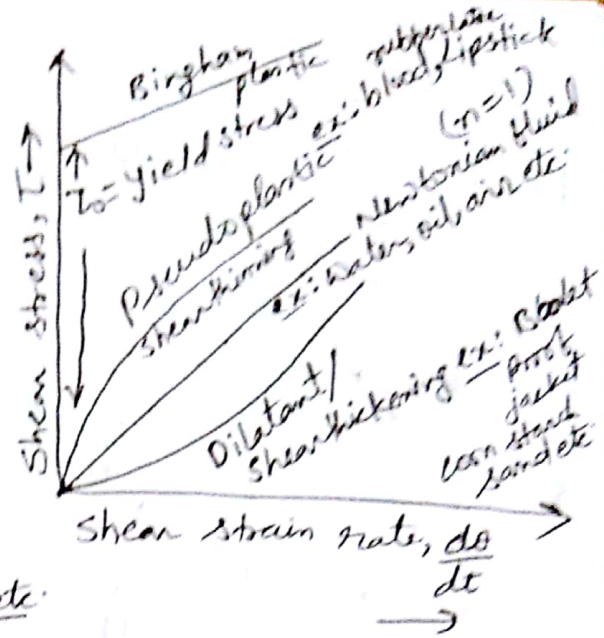 Bingham plastic
τ₀ = Yield stress
rubber latex
ex: blood, lipstick
Pseudoplastic
shear thinning
(n=1)
Newtonian fluid
ex: Water, oil, air etc.
Dilatant/
Shear thickening ex:
proof
jacket
corn starch
sand etc.
Shear stress, τ →
Shear strain rate, dθ/dt
etc.